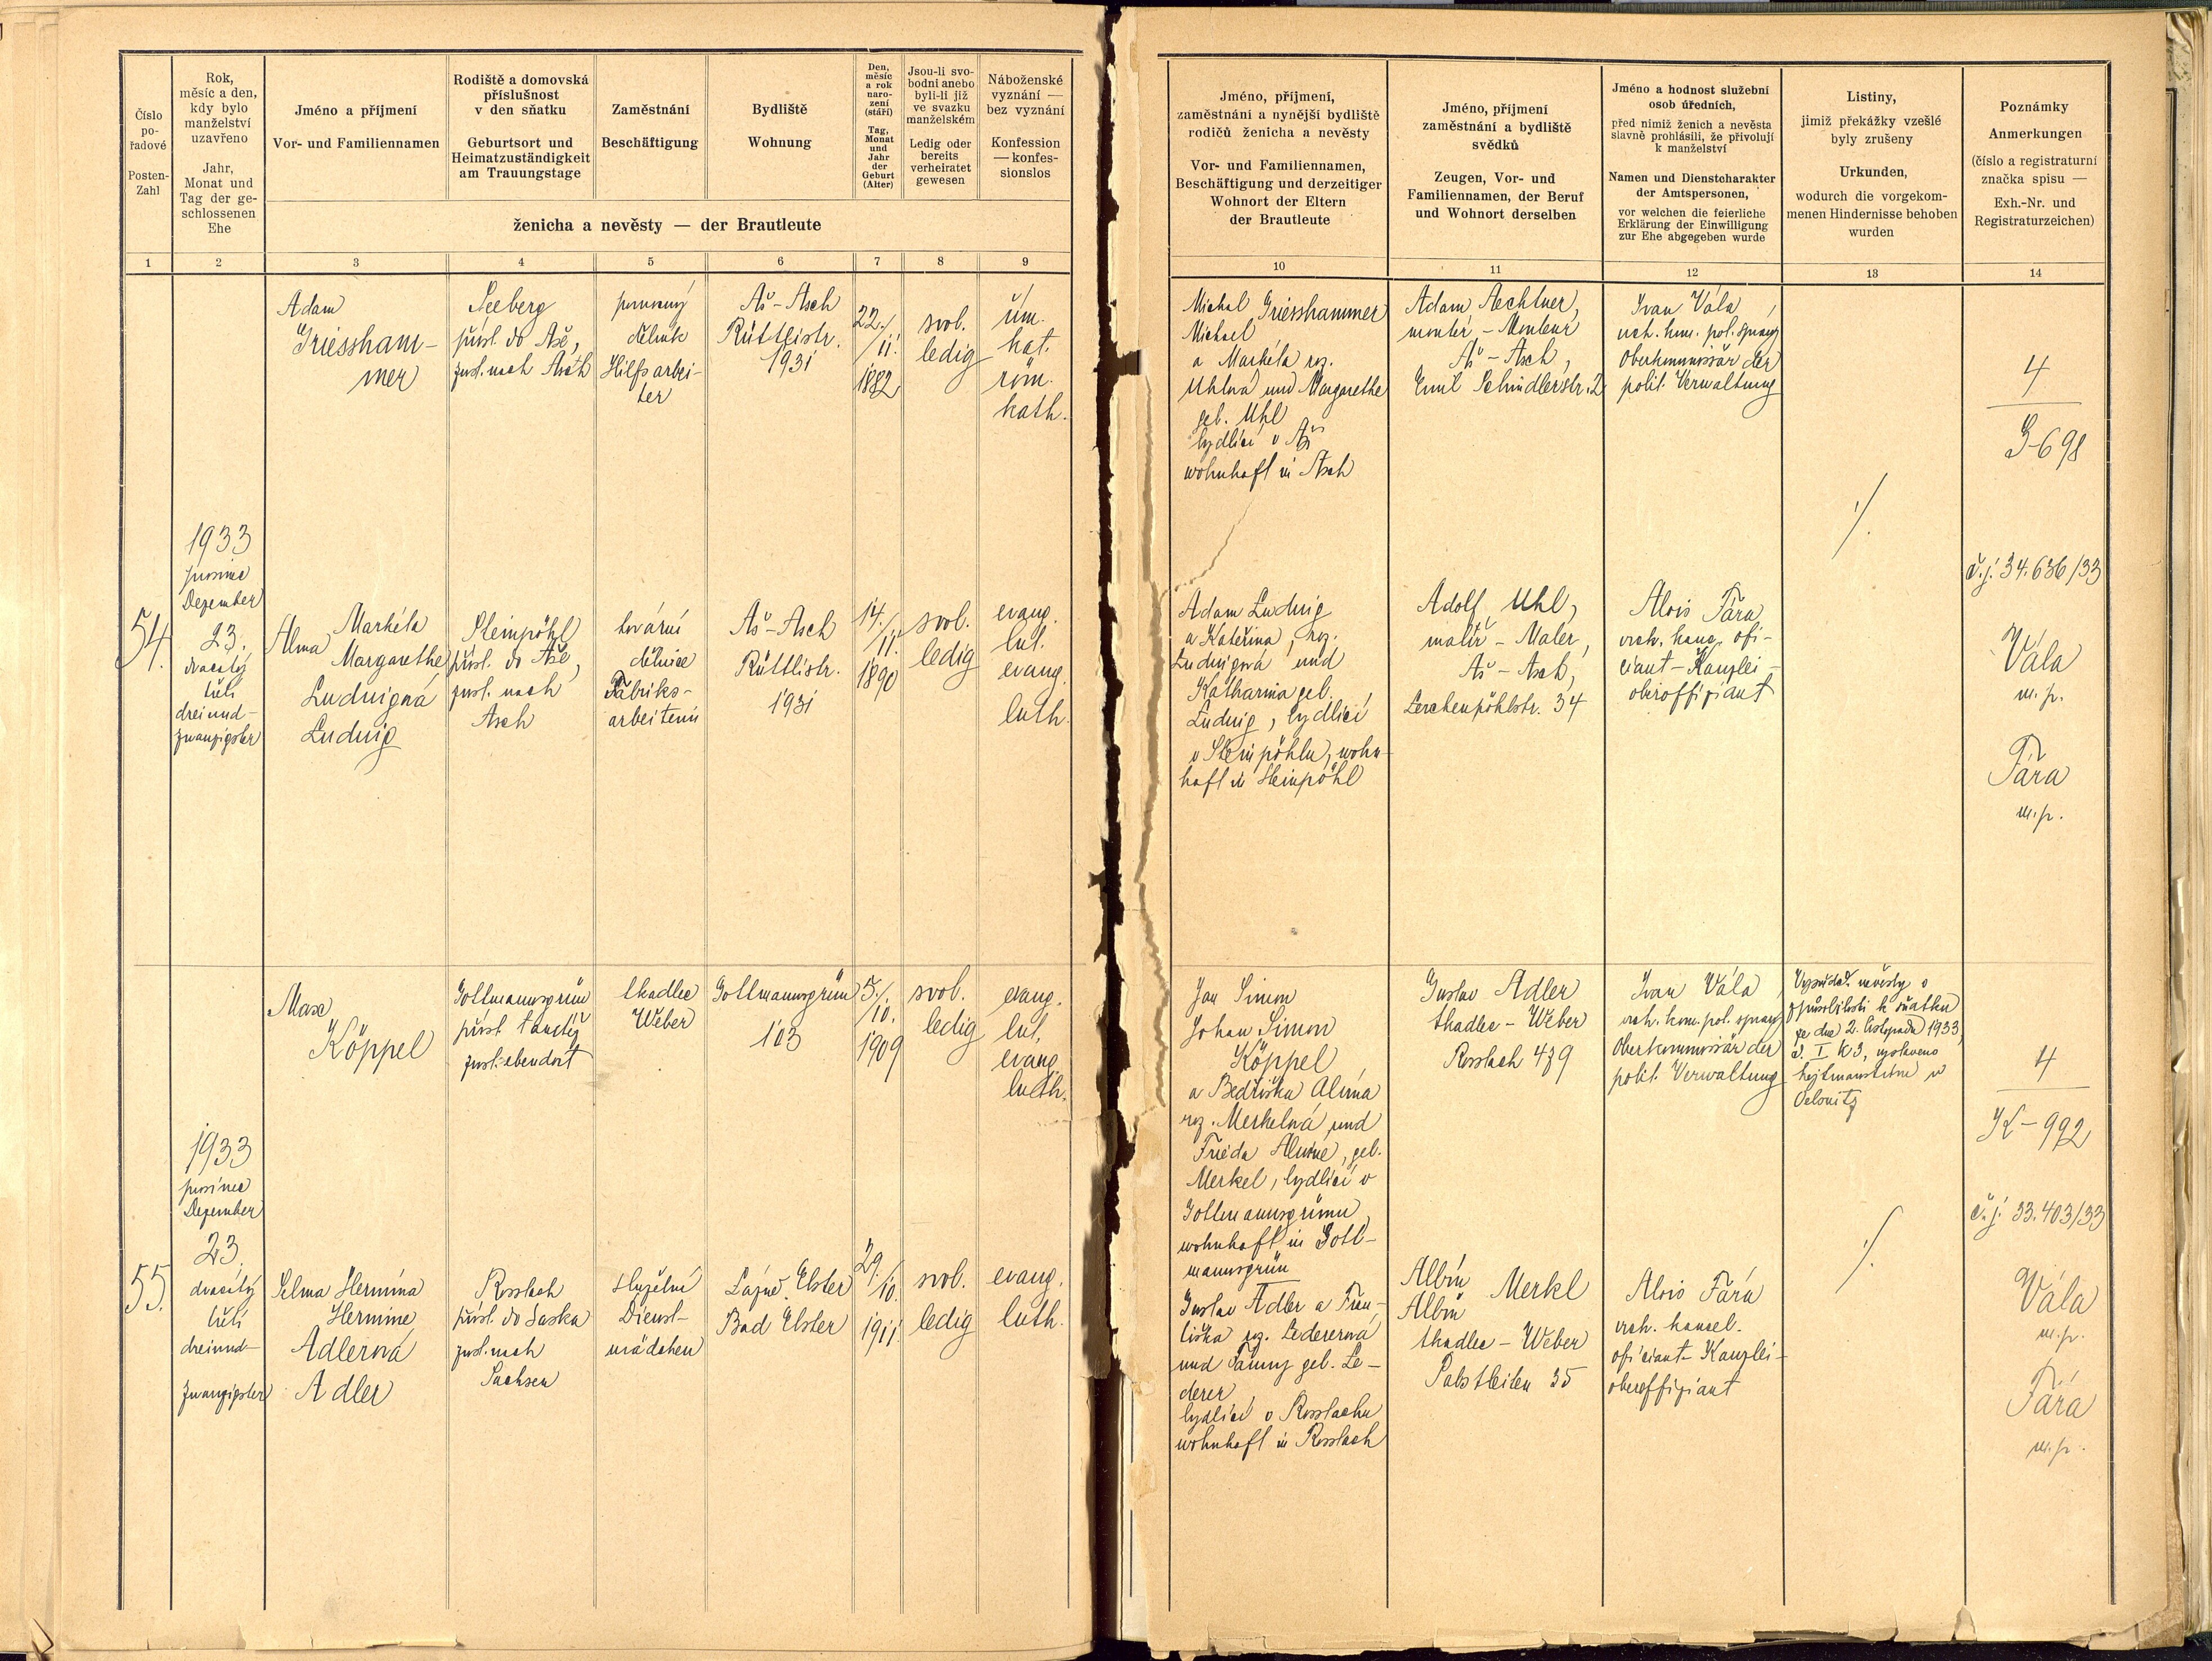 Číslo
po-
řadové
Posten-
Zahl
Rok,
měsíc a den,
kdy bylo
manželství
uzavřeno
Jahr,
Monat und
Tag der ge-
schlossenen
Ehe
Jméno a příjmení
Vor- und Familiennamen
Rodiště a domovská
příslušnost
v den sňatku
Geburtsort und
Heimatzuständigkeit
am Trauungstage
Zaměstnání
Beschäftigung
Bydliště
Wohnung
Den,
měsíc
a rok
naro-
zení
(stáří)
Tag,
Monat
und
Jahr
der
Geburt
(Alter)
Jsou-li svo-
bodni anebo
byli-li již
ve svazku
manželském
Ledig oder
bereits
verheiratet
gewesen
Náboženské
vyznání —
bez vyznání
Konfession
— konfes-
sionslos
ženicha a nevěsty — der Brautleute
Jméno, příjmení,
zaměstnání a nynější bydliště
rodičů ženicha a nevěsty
Vor- und Familiennamen,
Beschäftigung und derzeitiger
Wohnort der Eltern
der Brautleute
Jméno, příjmení
zaměstnání a bydliště
svědků
Zeugen, Vor- und
Familiennamen, der Beruf
und Wohnort derselben
Jméno a hodnost služební
osob úředních,
před nimiž ženich a nevěsta
slavně prohlásili, že přivolují
k manželství
Namen und Dienstcharakter
der Amtspersonen,
vor welchen die feierliche
Erklärung der Einwilligung
zur Ehe abgegeben wurde
Listiny,
jimiž překážky vzešlé
byly zrušeny
Urkunden,
wodurch die vorgekom-
menen Hindernisse behoben
wurden
Poznámky
Anmerkungen
(číslo a registraturní
značka spisu —
Exh.-Nr. und
Registraturzeichen)
1 2 3 4 5 6 7 8 9 10 11 12 13 14
54.
1933
prosinec
Dezember
23.
dvacátý
třetí
dreiund-
zwanzigster
Adam
Griessham-
mer
Seeberg
přísl. do Aše,
zust. nach Asch
pomocný
dělník
Hilfsarbei-
ter
Aš - Asch
Rüttlistr.
1931
22./
11.
1882
svob.
ledig
řím.
kat.
röm.
kath.
Michal Griesshammer
Michael
a Markéta roz.
Uhlová und Margarethe
geb. Uhl
bydlící v Aši
wohnhaft in Asch
Adam Aechtner,
montér - Monteur
Aš - Asch,
Emil Schindlerstr. 2
Ivan Vála,
vrch. kom. pol. správy
Oberkommissär der
polit. Verwaltung
4
G-698
Markéta
Alma
Margarethe
Ludwigová
Ludwig
Steinpöhl
přísl. do Aše,
zust. nach
Asch
tovární
dělnice
Fabriks-
arbeiterin
Aš - Asch
Rüttlistr.
1931
14./
11.
1890
svob.
ledig
evang.
lut.
evang.
luth.
Adam Ludwig
a Kateřina, roz.
Ludwigová und
Katharina geb.
Ludwig, bydlící
v Steinpöhlu, wohn-
haft in Steinpöhl
Adolf Uhl,
malíř - Maler,
Aš - Asch,
Lerchenpöhlstr. 34
Alois Fára,
vrch. kanc. ofi-
ciant - Kanzlei-
oberoffiziant
./.
č.j. 34.636/33
Vála
m. p.
Fára
m. p.
55.
1933
prosinec
Dezember
23.
dvacátý
třetí
dreiund-
zwanzigster
Max
Köppel
Gottmannsgrün
přísl. tamtéž
zust. ebendort
tkadlec
Weber
Gottmannsgrün
103
5./
10.
1909
svob.
ledig
evang.
lut.
evang.
luth.
Jan Simon
Johan Simon
Köppel
a Bedřiška Alvina
roz. Merkelová und
Frieda Alwine, geb.
Merkel, bydlící v
Gottmannsgrünu,
wohnhaft in Gott-
mannsgrün
Gustav Adler
tkadlec - Weber
Rossbach 479
Ivan Vála
vrch. kom. pol. správy
Oberkommissär der
polit. Verwaltung
nevěsty o
způsobilosti k sňatku
ze dne 2. listopadu 1933,
č. I K3, vystaveno
hejtmanstvím v
Oelsnitz
4
K-992
Selma Hermina
Hermine
Adlerová
Adler
Rossbach
přísl. do Saska
zust. nach
Sachsen
služebná
Dienst-
mädchen
Lázně Elster
Bad Elster
29./
10.
1911
svob.
ledig
evang.
luth.
Gustav Adler a Fran-
tiška roz. Ledererová
und Fanny geb. Le-
derer
bydlící v Rossbachu
wohnhaft in Rossbach
Albín Merkl
Albin
tkadlec - Weber
Pabstleiten 35
Alois Fára
vrch. kancel.
oficiant - Kanzlei-
oberoffiziant
./.
č.j. 33.403/33
Vála
m. p.
Fára
m. p.